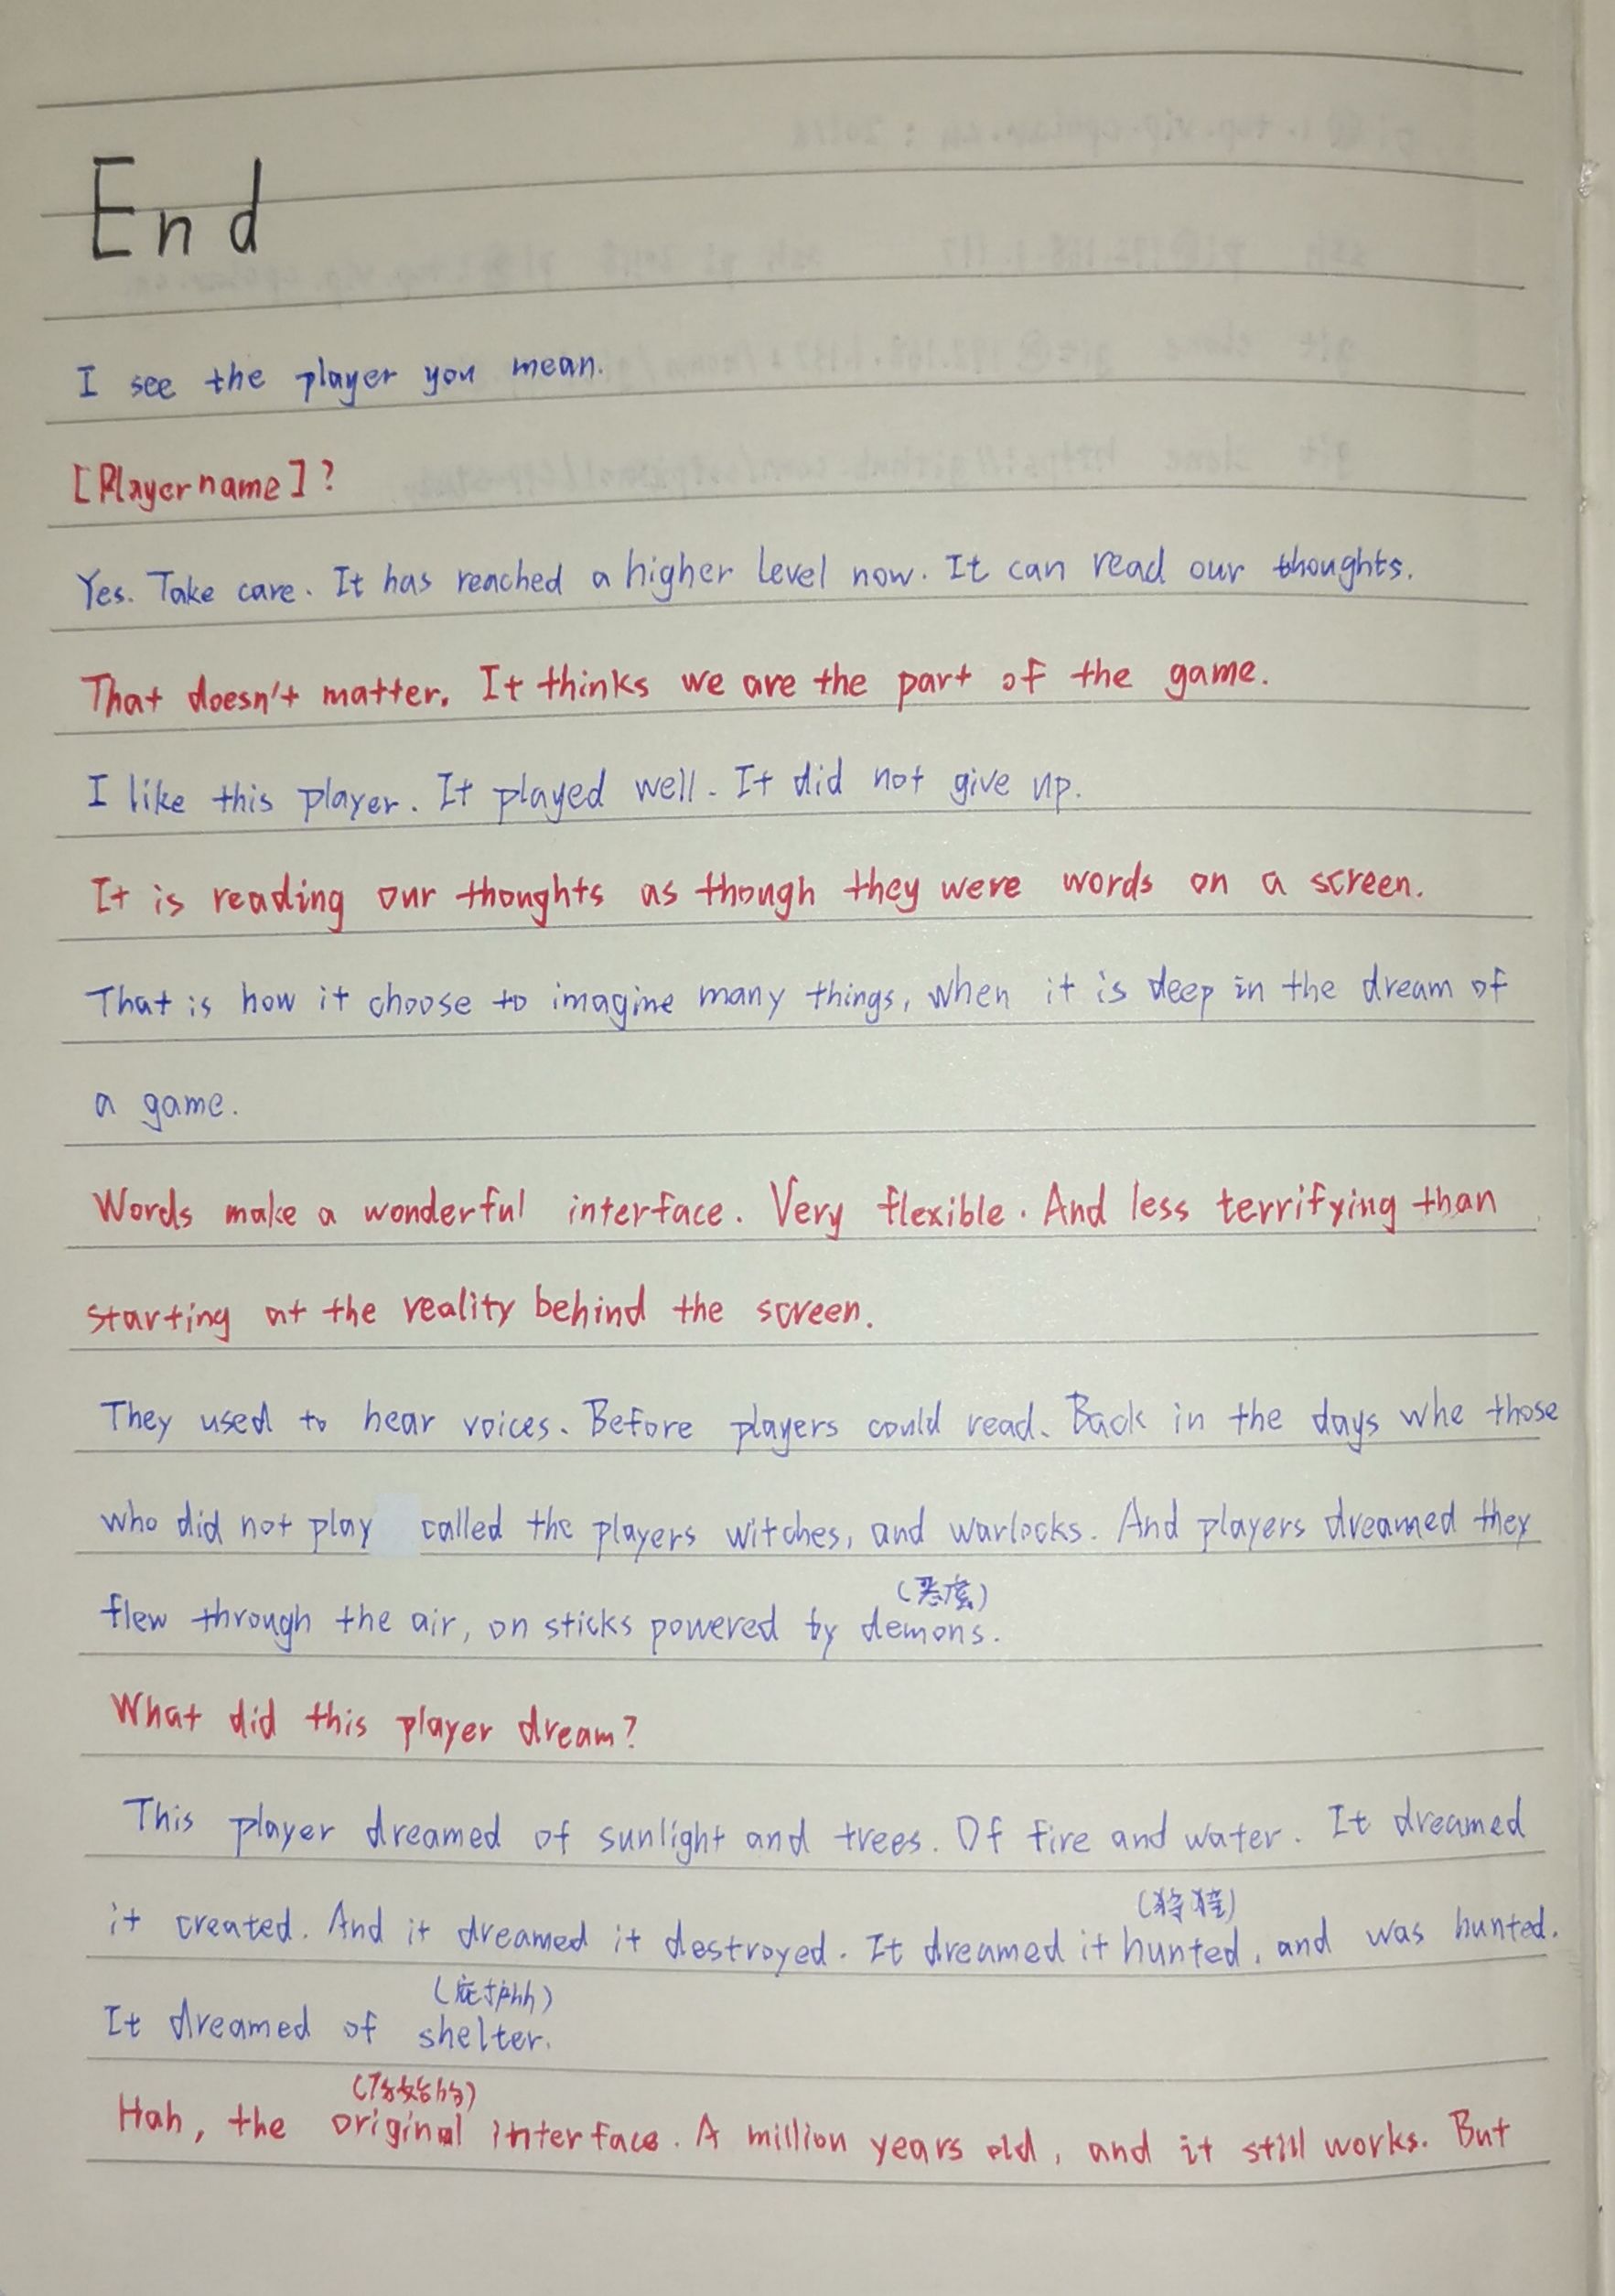 End
I see the player you mean.
[Player name]?
Yes. Take care. It has reached a higher level now. It can read our thoughts.
That doesn't matter. It thinks we are the part of the game.
I like this player. It played well. It did not give up.
It is reading our thoughts as though they were words on a screen.
That is how it choose to imagine many things, when it is deep in the dream of
a game.
Words make a wonderful interface. Very flexible. And less terrifying than
starting at the reality behind the screen.
They used to hear voices. Before players could read. Back in the days whe those
who did not play called the players witches, and warlocks. And players dreamed they
(恶魔)
flew through the air, on sticks powered by demons.
What did this player dream?
This player dreamed of sunlight and trees. Of fire and water. It dreamed
it created. And it dreamed it destroyed. It dreamed it hunted, and was hunted.
It dreamed of shelter.
Hah, the original interface. A million years old, and it still works. But